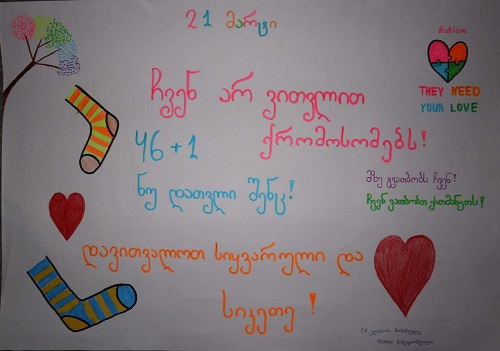 21 მარტი
Autism
THEY NEED
YOUR LOVE
ჩვენ არ ვითვლით
46+1 ქრომოსომებს!
ნუ დათვლი შენც!
მზე გვათბობს ჩვენ!
ჩვენ ვათბობთ ერთმანეთს!
დავითვალოთ სიყვარული და
სიკეთე!